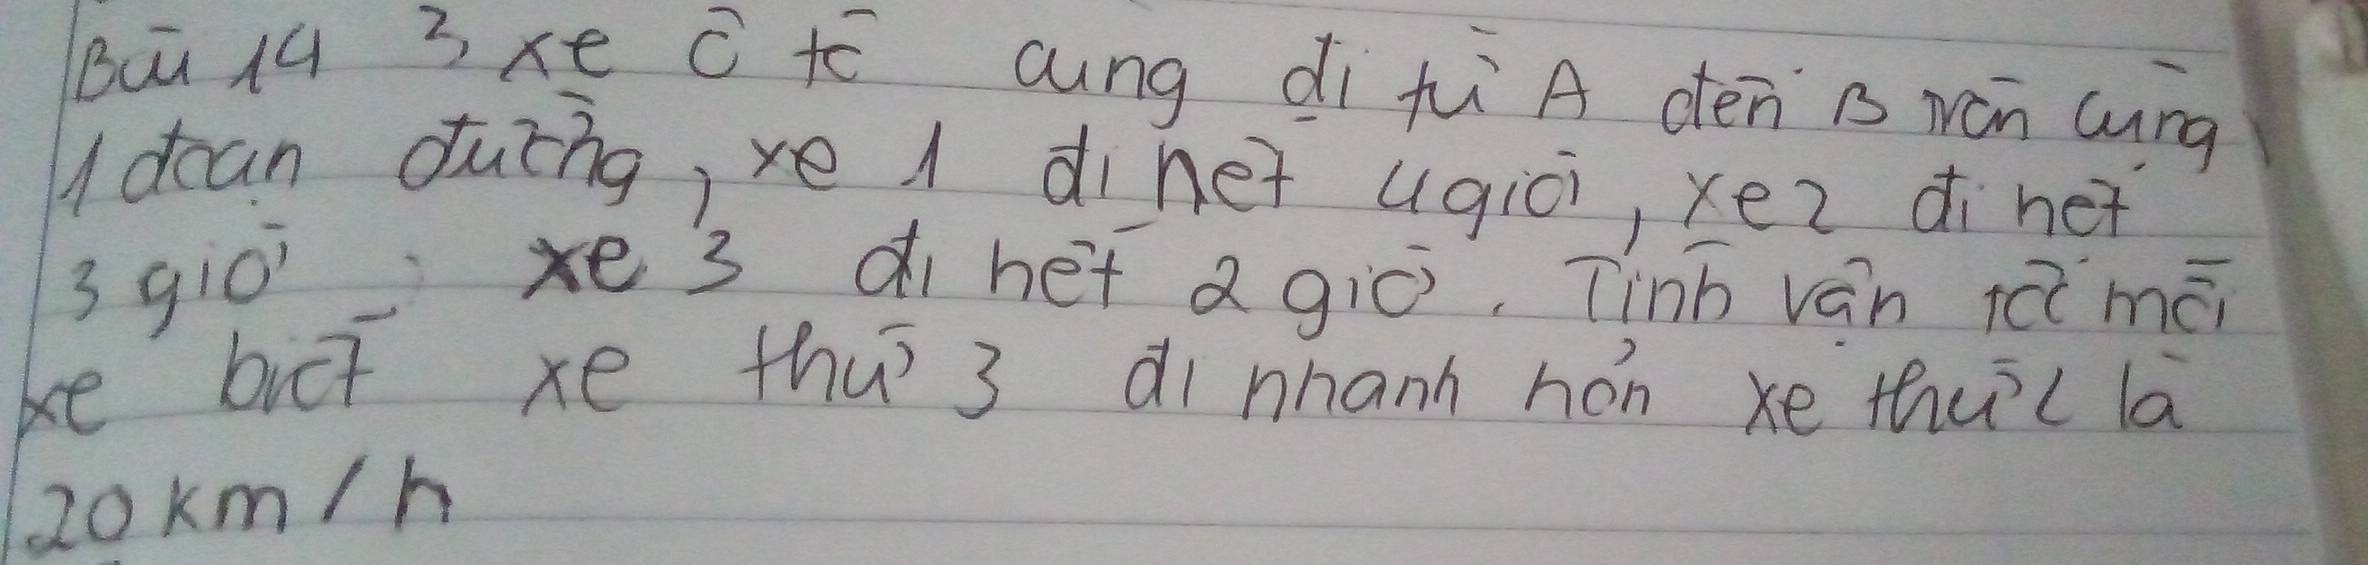 Bài 14 3 xe ô tô cùng đi từ A đến B trên cùng
1 đoạn đường, xe 1 đi hết 4 giờ, xe 2 đi hết
3 giờ, xe 3 đi hết 2 giờ. Tính vận tốc mỗi
xe biết xe thứ 3 đi nhanh hơn xe thứ 2 là
20 km/h